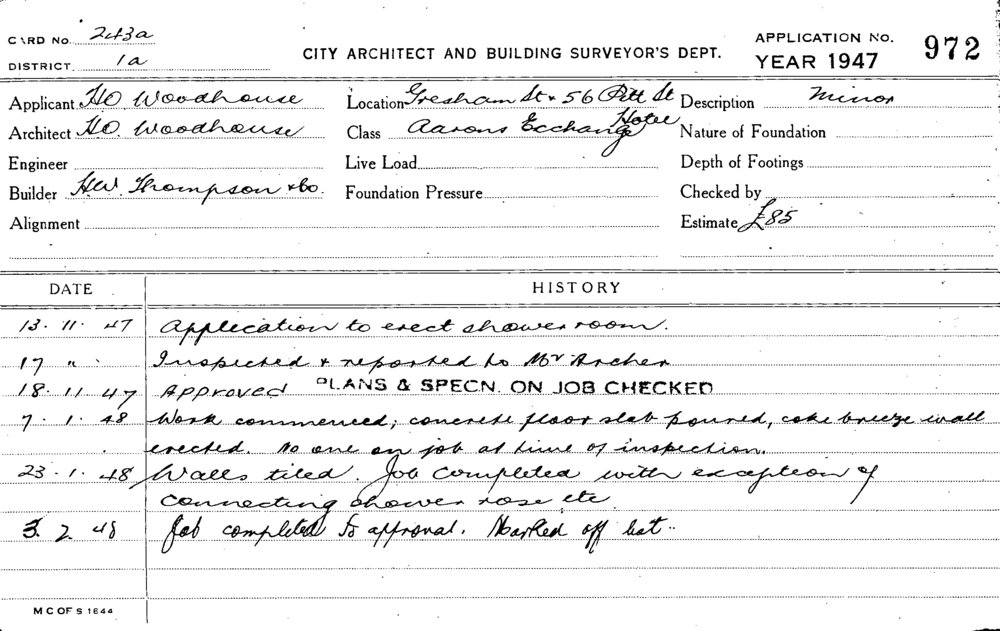 CARD No. 243a
DISTRICT. 1a
CITY ARCHITECT AND BUILDING SURVEYOR'S DEPT.
APPLICATION No. 972
YEAR 1947
Applicant HO Woodhouse
Location Gresham St & 56 Pitt St
Description Minor
Architect HO Woodhouse
Class Aarons Exchange Hotel
Nature of Foundation
Engineer
Live Load
Depth of Footings
Builder H.W. Thompson & Co.
Foundation Pressure
Checked by
Alignment
Estimate £85
DATE HISTORY
13. 11. 47 Application to erect shower room.
17 " . Inspected & reported to Mr Archer
18. 11. 47 Approved PLANS & SPECN. ON JOB CHECKED
7. 1. 48 Work commenced; concrete floor slab poured, coke breeze wall
erected. No one on job at time of inspection.
23. 1. 48 Walls tiled. Job completed with exception of
connecting shower rose etc
3. 2. 48 Job completed to approval. Marked off list.
M C OF S 1644